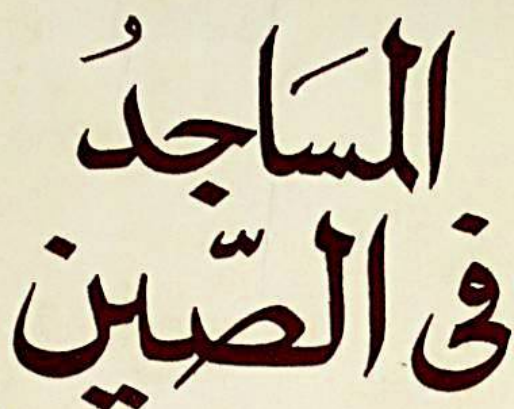 المسَاجدُ
فى الصّين